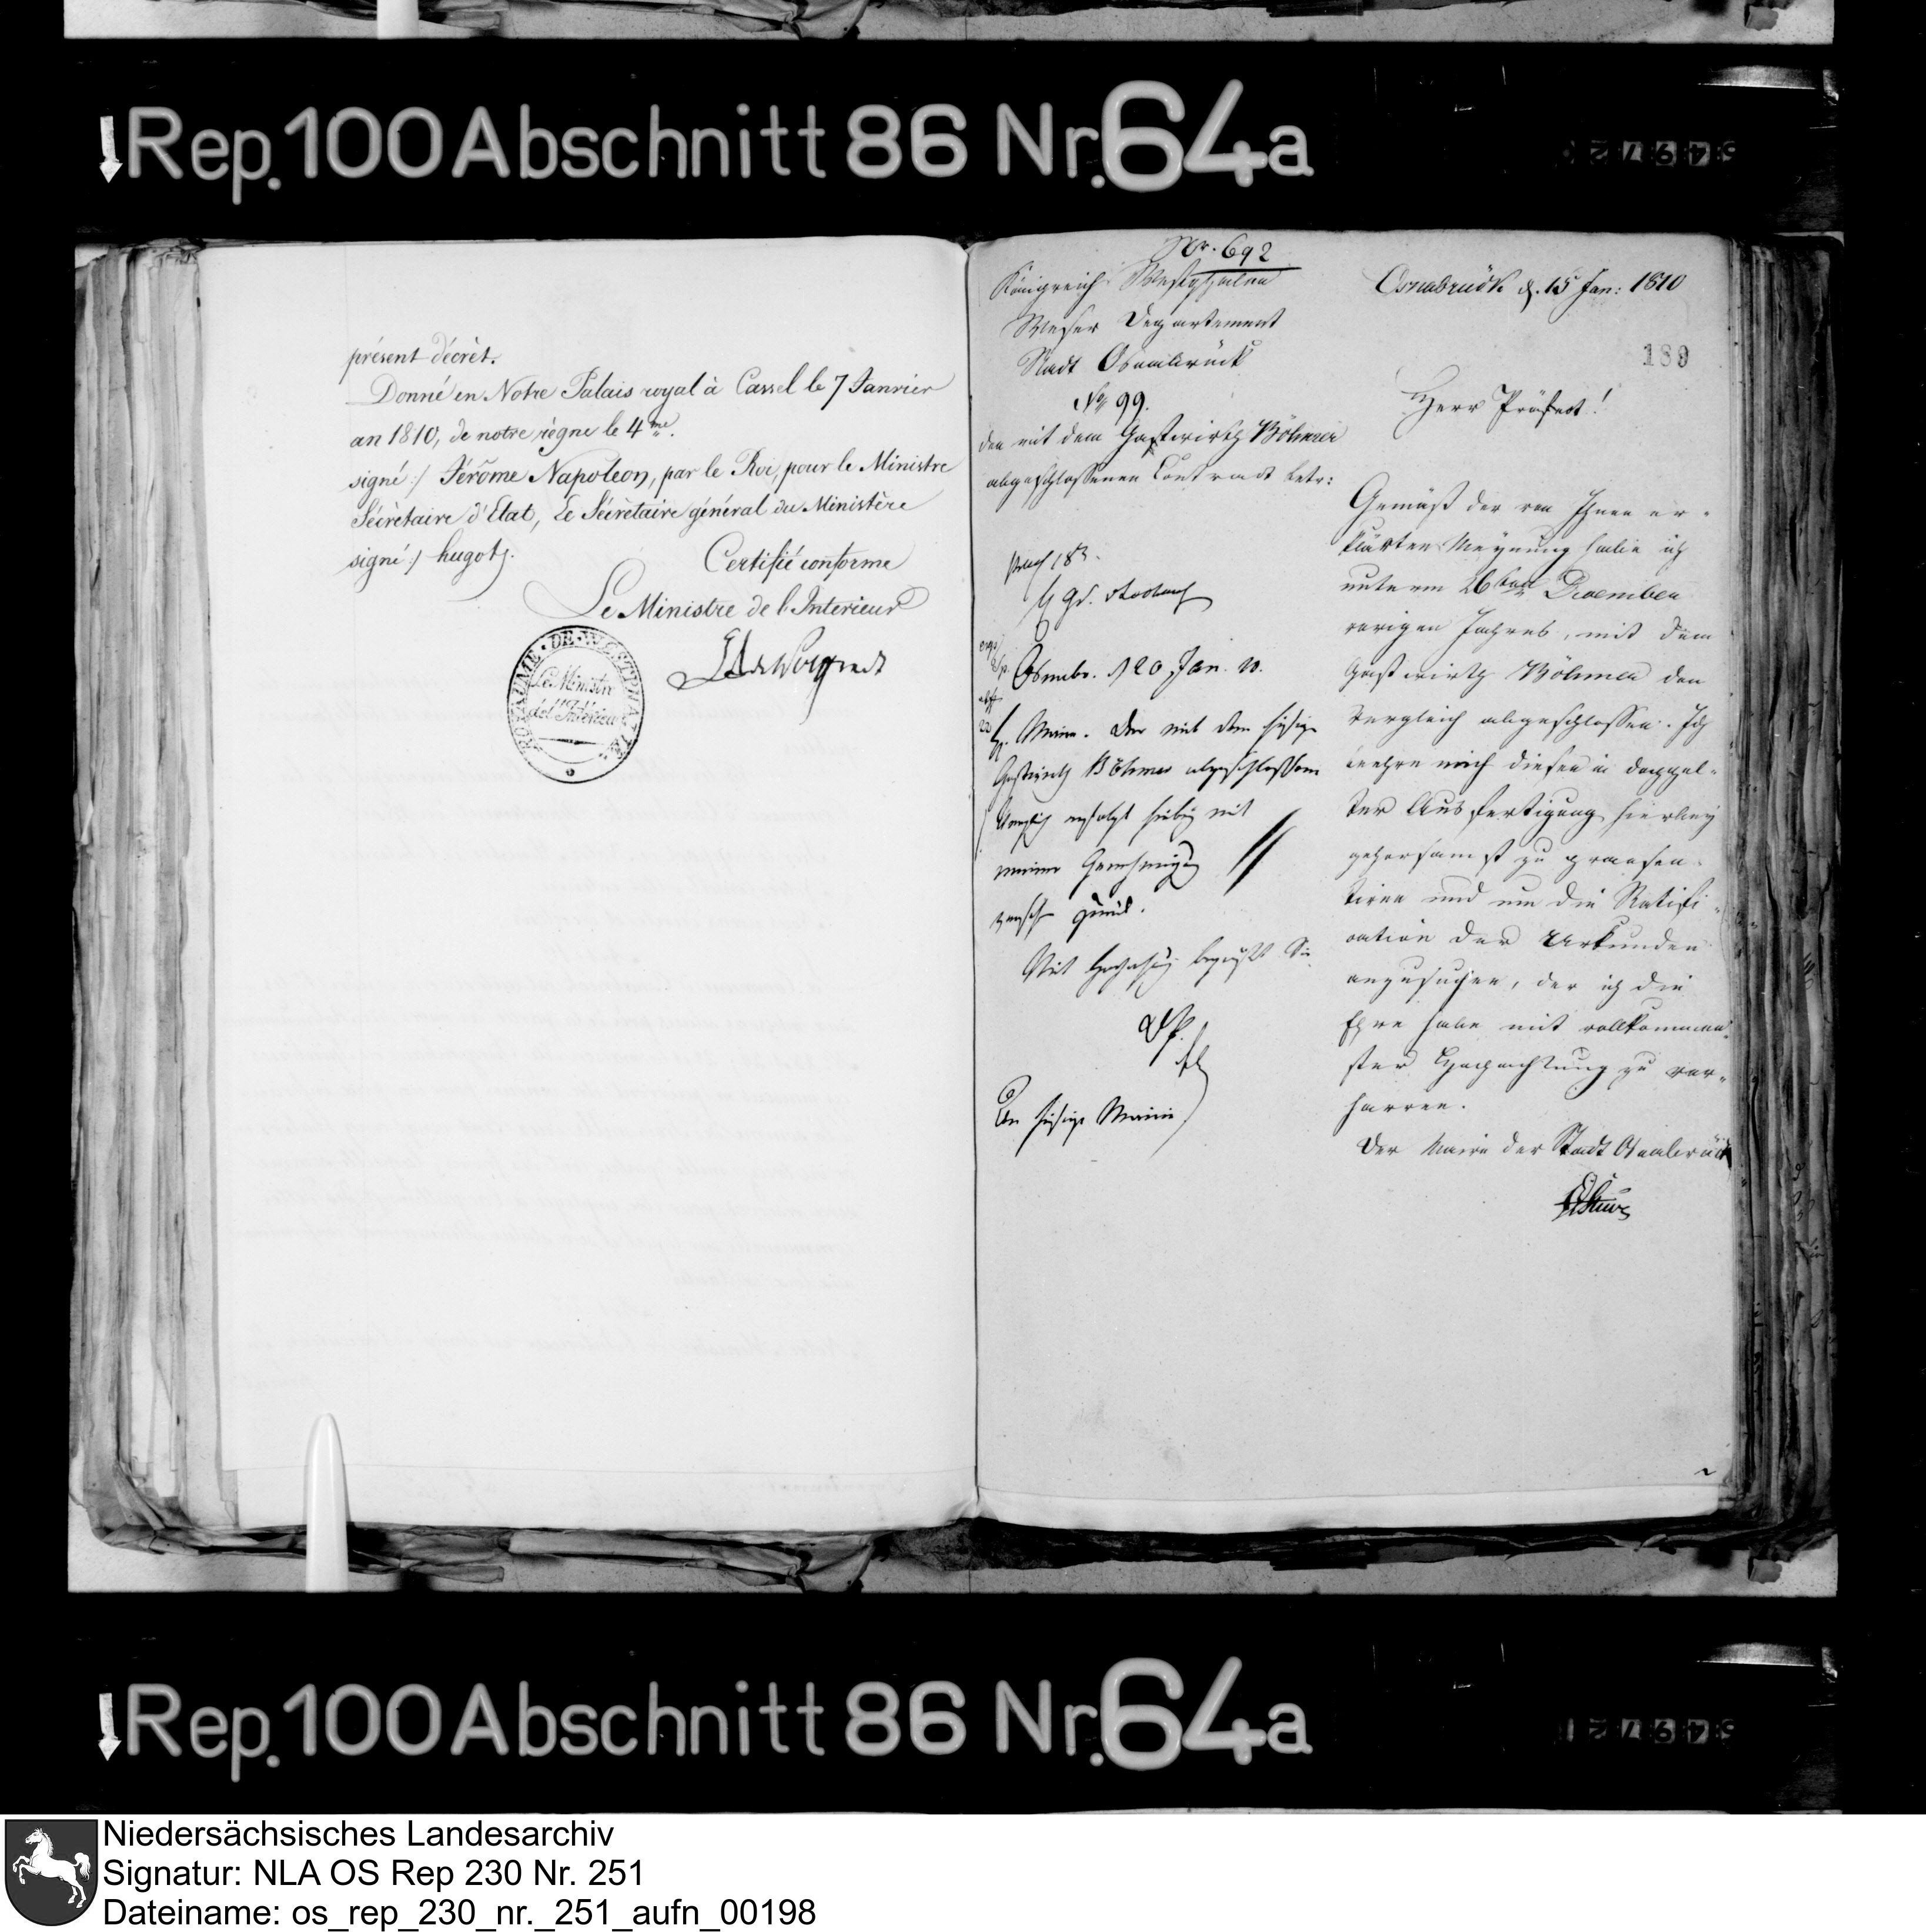 Rep. 100 Abschnitt 86 Nr. 64a
présent décret.
Donné en Notre Palais royal à Cassel le 7 Janvier
an 1810, de notre règne le 4me.
signé :/ Jérôme Napoléon, par le Roi, pour le Ministre
Sécrétaire d'Etat, Le Sécrétaire général du Ministère
signé :/ hugot/.
Certifié conforme
Le Ministre de l'Interieur
ROYAUME DE WESTPHALIE
Le Ministre
de l'Intérieur
Nr. 692
Königreich Westphalen
Weser Departement
Stadt Osnabrück
No 99.
den mit dem Gastwirth Böhmer
abgeschlossenen Contract betr:
Osnabr. d 20 Jan. 10.
H. Maire. Der mit dem hiesigen
Gastwirth Böhmer abgeschlossene
Vergleich erfolgt hiebei mit
meiner Genehmigung
versehen zurück.
Mit Hochachtung begrüßt Sie
D.P.
An hiesige Mairie
Osnabrück d. 15 Jan: 1810
189
Herr Präfect!
Gemäß der von Ihnen er-
klärten Meynung habe ich
unterm 26ten December
vorigen Jahres, mit dem
Gastwirth Böhmer den
Vergleich abgeschlossen. Ich
beehre mich diesen in doppel-
ter Ausfertigung hierbey
gehorsamst zu praesen-
tiren und um die Ratifi-
cation der Urkunden
anzusuchen, der ich die
Ehre habe mit vollkommen-
ster Hochachtung zu ver-
harren.
Der Maire der Stadt Osnabrück
Stüve
Rep. 100 Abschnitt 86 Nr. 64a
Niedersächsisches Landesarchiv
Signatur: NLA OS Rep 230 Nr. 251
Dateiname: os_rep_230_nr._251_aufn_00198